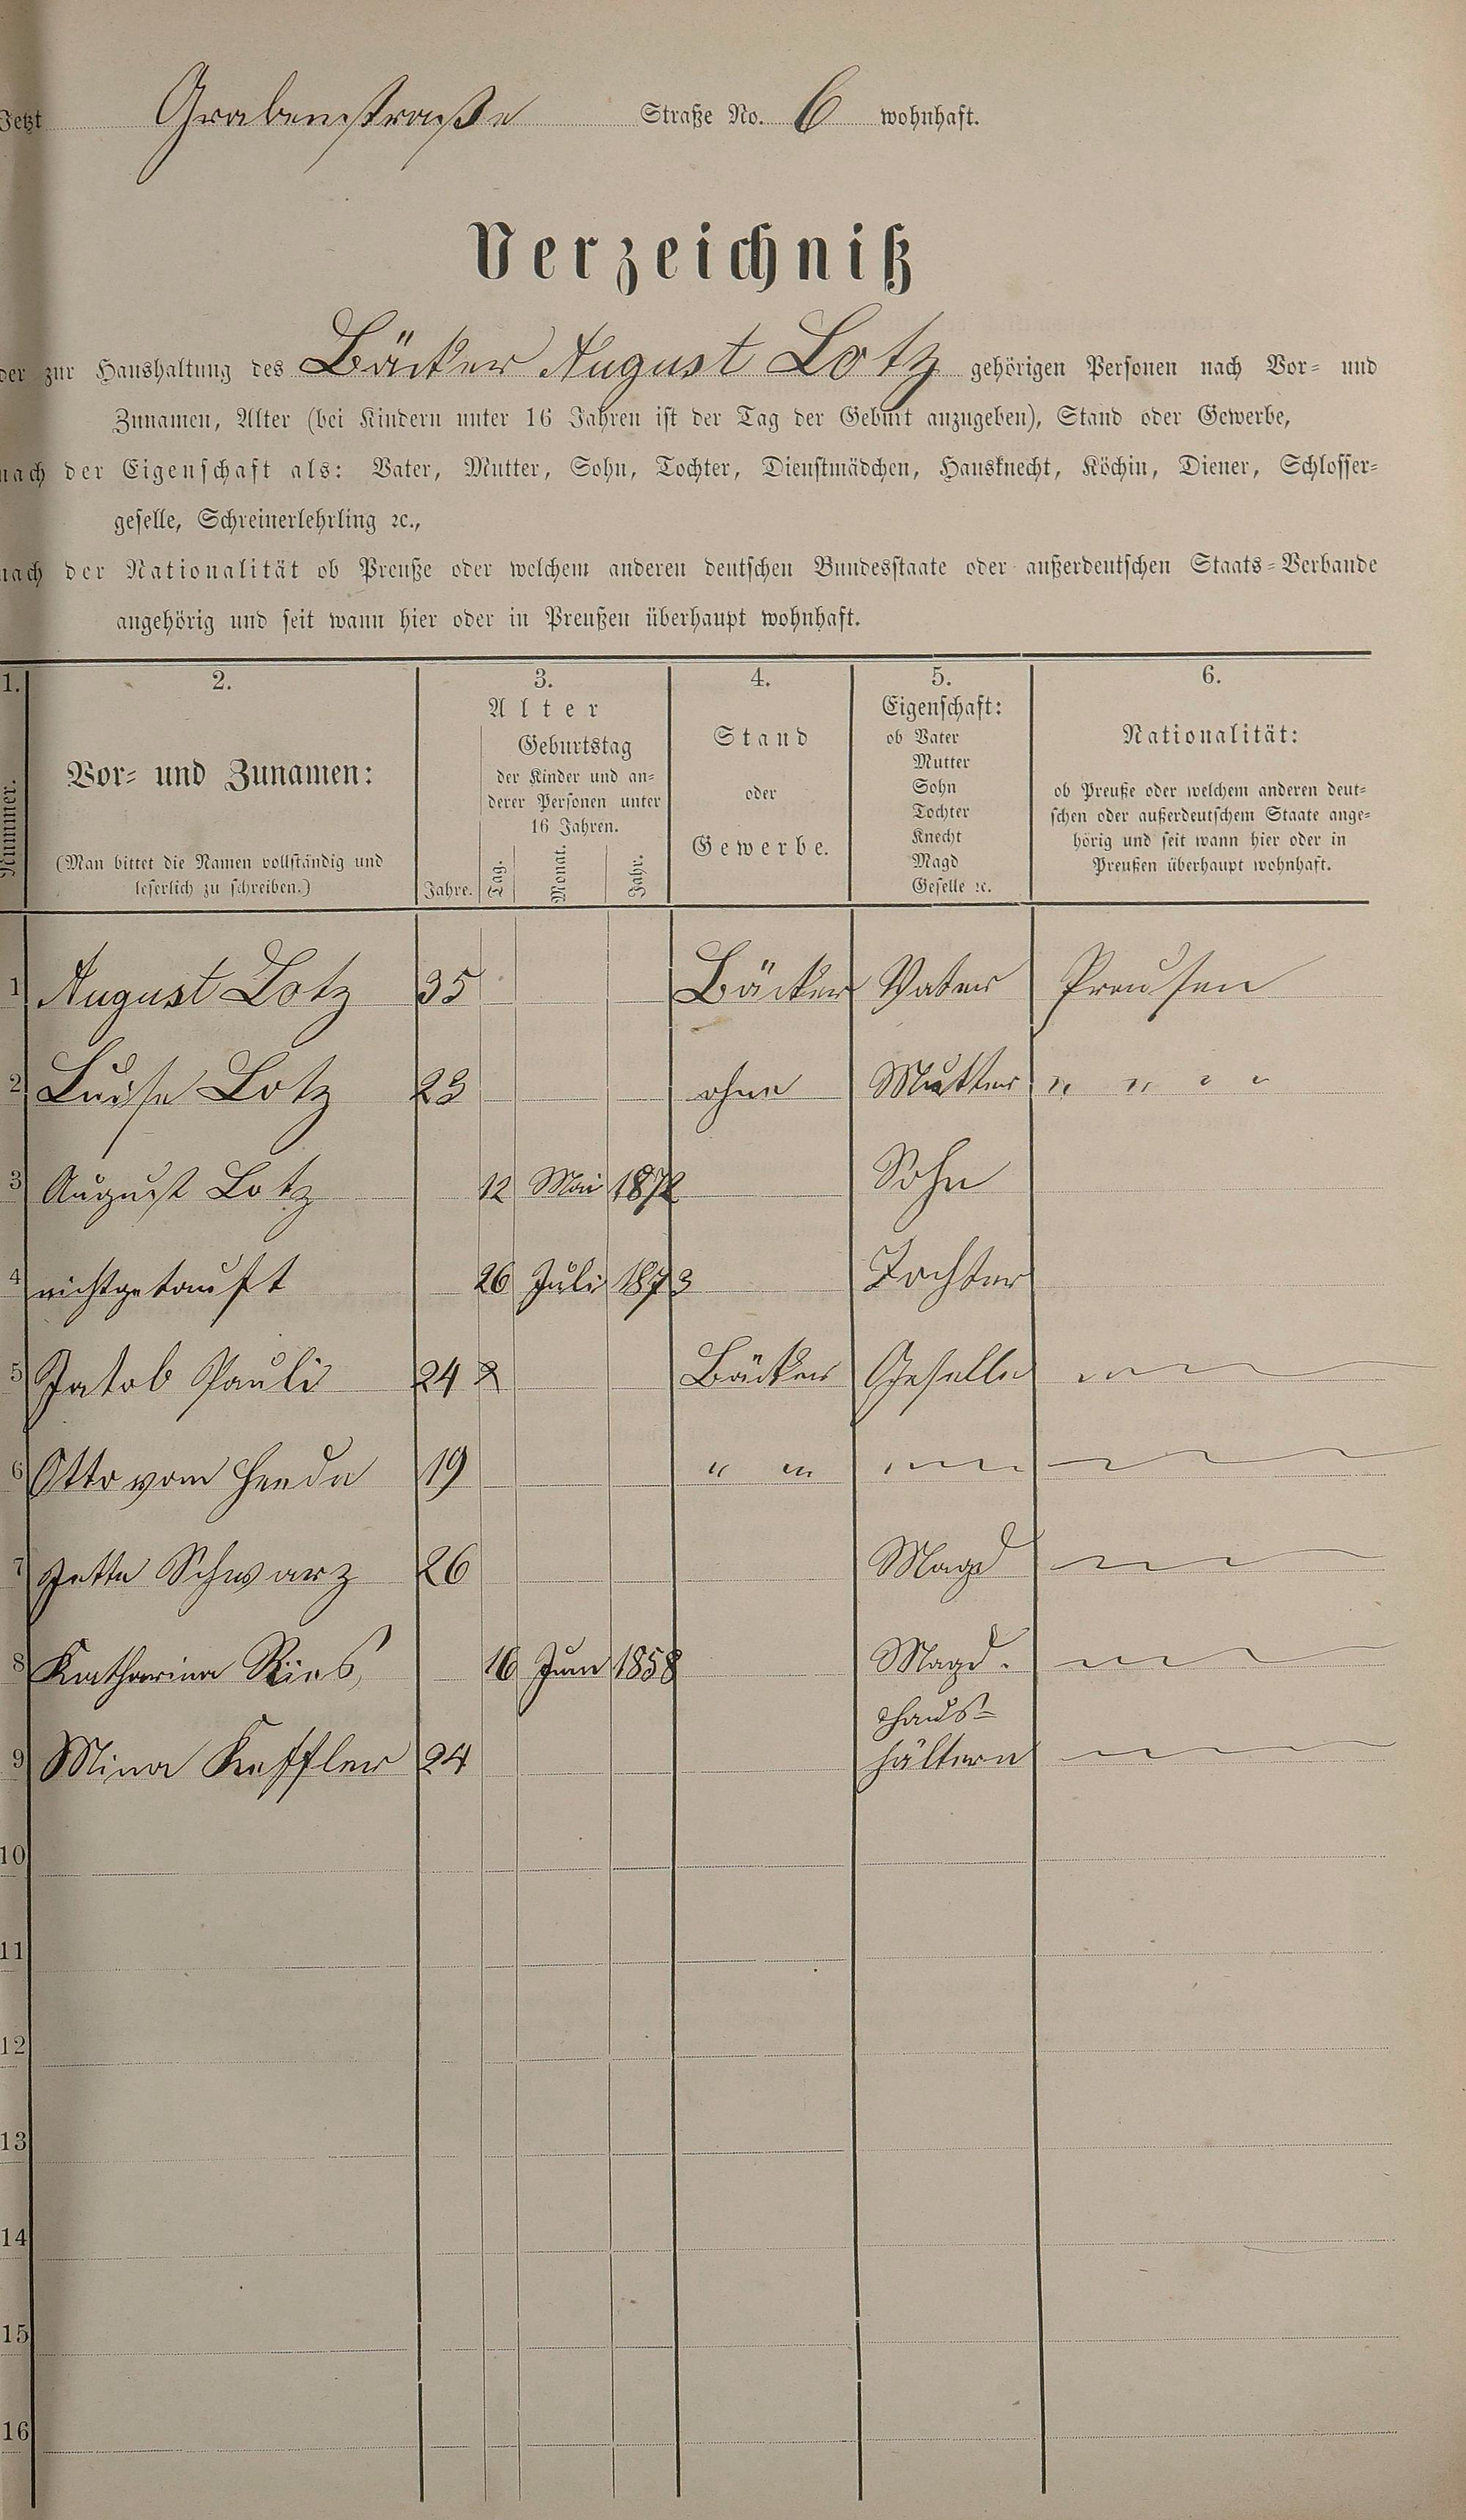 Jetzt Grabenstraße Straße No. 6 wohnhaft.
Verzeichniß
der zur Haushaltung des Bäcker August Lotz gehörigen Personen nach Vor- und
Zunamen, Alter (bei Kindern unter 16 Jahren ist der Tag der Geburt anzugeben), Stand oder Gewerbe,
nach der Eigenschaft als: Vater, Mutter, Sohn, Tochter, Dienstmädchen, Hausknecht, Köchin, Diener, Schlosser-
geselle, Schreinerlehrling ꝛc.,
nach der Nationalität ob Preuße oder welchem anderen deutschen Bundesstaate oder außerdeutschen Staats-Verbande
angehörig und seit wann hier oder in Preußen überhaupt wohnhaft.
1.
Nummer.
2.
Vor- und Zunamen:
(Man bittet die Namen vollständig und
leserlich zu schreiben.)
3.
Alter
Jahre.
Geburtstag
der Kinder und an-
derer Personen unter
16 Jahren.
Tag. Monat. Jahr.
4.
Stand
oder
Gewerbe.
5.
Eigenschaft:
ob Vater
Mutter
Sohn
Tochter
Knecht
Magd
Geselle ꝛc.
6.
Nationalität:
ob Preuße oder welchem anderen deut-
schen oder außerdeutschem Staate ange-
hörig und seit wann hier oder in
Preußen überhaupt wohnhaft.
1 August Lotz 35 Bäcker Vater Preusen
2 Luise Lotz 23 ohne Mutter " " " "
3 August Lotz 12 Mai 1872 Sohn
4 nichtgetauft 26 Juli 1873 Tochter
5 Jakob Pauli 24 Bäcker Geselle
6 Otto vom Heede 19 " "
7 Jette Schwarz 26 Magd
8 Katharina Ries 16 Juni 1858 Magd.
9 Mina Keffler 24 Haus-
hältern
10
11
12
13
14
15
16